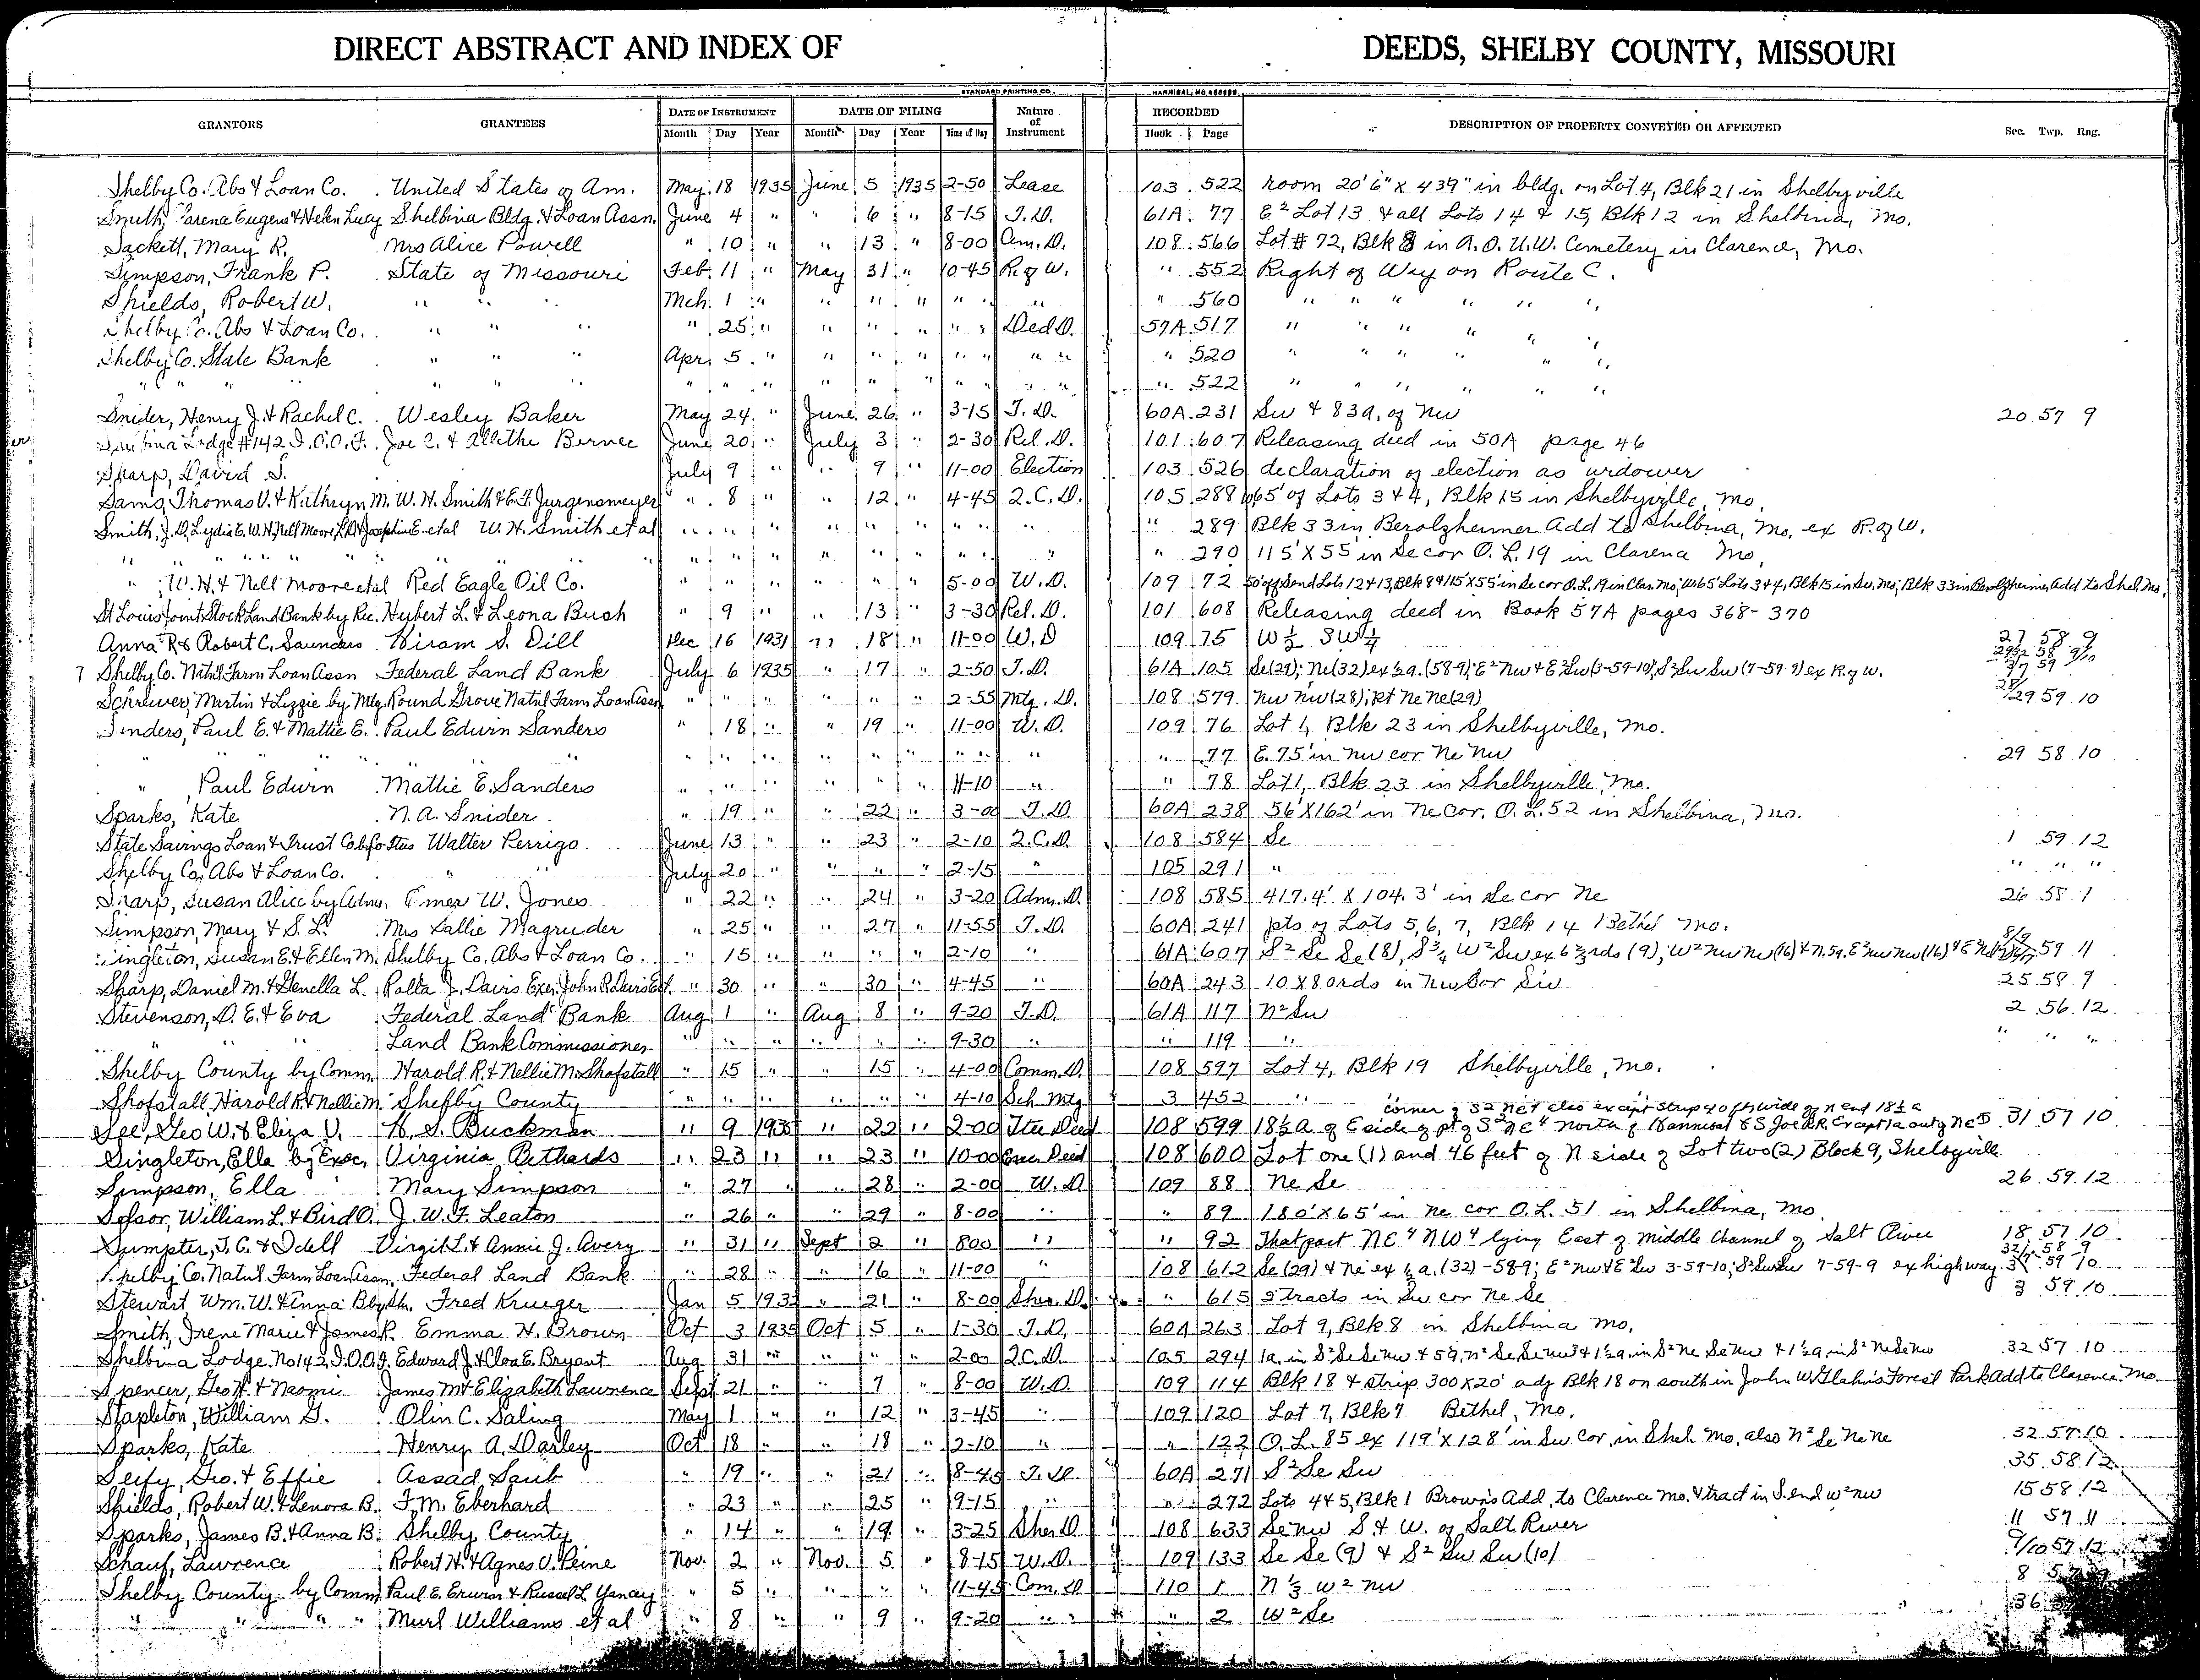 DIRECT ABSTRACT AND INDEX OF DEEDS, SHELBY COUNTY, MISSOURI
STANDARD PRINTING CO. HANNIBAL, MO.
GRANTORS GRANTEES DATE OF INSTRUMENT DATE OF FILING Nature of Instrument RECORDED DESCRIPTION OF PROPERTY CONVEYED OR AFFECTED Sec. Twp. Rng.
Month Day Year Month Day Year Time of Day Book Page
Shelby Co. Abs & Loan Co. United States of Am. May 18 1935 June 5 1935 2-50 Lease 103 522 room 20'6" X 43'9" in bldg. on Lot 4, Blk 21 in Shelbyville
Smith, Eugene & Helen Lucy Shelbina Bldg. & Loan Assn. June 4 " " 6 " 8-15 T.D. 61A 77 E² Lot 13 & all Lots 14 & 15, Blk 12 in Shelbina, Mo.
Sackett, Mary R. Mrs Alice Powell " 10 " " 13 " 8-00 Cem. D. 108 566 Lot # 72, Blk 8 in A.O.U.W. Cemetery in Clarence, Mo.
Simpson, Frank P. State of Missouri Feb 11 " May 31 " 10-45 R. of W. " 552 Right of Way on Route C.
Shields, Robert W. " " " Mch 1 " " " " " " " 560 " " " " " "
Shelby Co. Abs & Loan Co. " " " " 25 " " " " " Ded D. 57A 517 " " " " " "
Shelby Co. State Bank " " " Apr 5 " " " " " " " " 520 " " " " " "
" " " " " " " " " " " " " " " " " 522 " " " " " "
Snider, Henry J. & Rachel C. Wesley Baker May 24 " June 26 " 3-15 T.D. 60A 231 Sw & 83a. of Nw 20 57 9
Lodge #142 I.O.O.F. Joe C. & Allithe Bernee June 20 " July 3 " 2-30 Rel. D. 101 607 Releasing deed in 50A page 46
Sharp, David S. July 9 " " 9 " 11-00 Election 103 526 declaration of election as widower
Sams, Thomas V. & Kathryn M. W. H. Smith & E. F. Jurgensmeyer " 8 " " 12 " 4-45 Q.C.D. 105 288 W65' of Lots 3 & 4, Blk 15 in Shelbyville, Mo.
Smith, J. D. Lydia E. W. H. Nell Moore Josephine E. etal W. H. Smith et al " " " " " " " " " 289 Blk 33 in Berolzheimer Add to Shelbina, Mo. ex R. of W.
" " " " " " " " " " " " " " " 290 115' X 55' in Se cor O. L. 19 in Clarence Mo.
" W. H. & Nell Moore etal Red Eagle Oil Co. " " " " " " 5-00 W.D. 109 72 50' off Send Lots 12 & 13, Blk 8 & 115' X 55' in Se cor O.L. 19 in Clar. Mo; W65' Lots 3 & 4, Blk 15 in Sv. Mo; Blk 33 in Berolzheimer Add to Shel. Mo.
St Louis Joint Stock Land Bank by Rec. Hubert L. & Leona Bush " 9 " " 13 " 3-30 Rel. D. 101 608 Releasing deed in Book 57A pages 368-370
Anna R & Robert C. Saunders Hiram S. Dill Dec 16 1931 " 18 " 11-00 W.D 109 75 W½ SW¼ 27 58 9
7 Shelby Co. Nat'l Farm Loan Assn Federal Land Bank July 6 1935 " 17 " 2-50 T.D. 61A 105 Se(29); Ne(32) ex ½a. (58-9); E² Nw & E² Sw (3-59-10); S² Sw Sw (7-59-9) ex R. of W.
Schreiver, Martin & Lizzie by Mtg. Round Grove Nat'l Farm Loan Assn " " " " " " 2-55 Mtg. D. 108 579 Nw Nw (28); pt Ne Ne (29) 28/29 59 10
Sanders, Paul E. & Mattie E. Paul Edwin Sanders " 18 " " 19 " 11-00 W.D. 109 76 Lot 1, Blk 23 in Shelbyville, Mo.
" " " " " " " " " " " " " " 77 E. 75' in Nw cor Ne Nw 29 58 10
" Paul Edwin Mattie E. Sanders " " " " " " 11-10 " " 78 Lot 1, Blk 23 in Shelbyville, Mo.
Sparks, Kate N. A. Snider " 19 " " 22 " 3-00 T.D. 60A 238 56' X 162' in Ne Cor. O. L. 52 in Shelbina, Mo.
State Savings Loan & Trust Co. Walter Perrigo June 13 " " 23 " 2-10 Q.C.D. 108 584 Se 1 59 12
Shelby Co. Abs & Loan Co. " " July 20 " " " " 2-15 " 105 291 " " " "
Sharp, Susan Alice by Adm. Omer W. Jones " 22 " " 24 " 3-20 Adm. D. 108 585 417.4' X 104.3' in Se cor Ne 26 58 1
Simpson, Mary & S. L. Mrs Sallie Magruder " 25 " " 27 " 11-55 T.D. 60A 241 pts of Lots 5, 6, 7, Blk 14 Bethel Mo.
Singleton, Susan E. & Ellen M. Shelby Co. Abs & Loan Co. " 15 " " " " 2-10 " 61A 607 S² Se Se (8), W² Sw ex 6⅔rds (9); W² Nw Ne (16) 59 11
Sharp, Daniel M. & Genella L. Rolla J. Davis Exr, John P. Davis Est. " 30 " " 30 " 4-45 " 60A 243 10 X 80rds in Nw Cor Sw 25 58 9
Stevenson, D. E. & Eva Federal Land Bank Aug 1 " Aug 8 " 9-20 T.D. 61A 117 N² Sw 2 56 12
" " " Land Bank Commissioner " " " " " " 9-30 " " 119 " " " "
Shelby County by Comm. Harold R. & Nellie M. Shofstall " 15 " " 15 " 4-00 Comm. D. 108 597 Lot 4, Blk 19 Shelbyville, Mo.
Shofstall Harold R. & Nellie M. Shelby County " " " " " " 4-10 Sch Mtg 3 452 "
corner of S2 NE4 also except strip 40 ft wide of n end 18½ a
See, Geo W. & Eliza V. H. S. Buckman " 9 1935 " 22 " 2-00 Deed 108 599 18½ a of E side of pt of S² NE⁴ North of Hannibal & S Joe R.R. 31 57 10
Singleton, Ella by Exec, Virginia Bethards " 23 " " 23 " 10-00 Exec. Deed 108 600 Lot one (1) and 46 feet of N side of Lot two (2) Block 9, Shelbyville
Simpson, Ella Mary Simpson " 27 " " 28 " 2-00 W.D 109 88 Ne Se 26 59 12
Selsor, William L. & Bird O. J. W. F. Leaton " 26 " " 29 " 8-00 " " 89 180' X 65' in Ne cor O.L. 51 in Shelbina, Mo.
Sumpter, T. C. & Idell Virgil L. & Annie J. Avery " 31 " Sept 2 " 800 " " 92 That part NE⁴ NW⁴ lying East of middle channel of Salt River 18 57 10
Shelby Co. Nat'l Farm Loan Assn, Federal Land Bank " 28 " " 16 " 11-00 " 108 612 Se (29) & Ne ex ½ a. (32)-58-9; E² Nw & E² Sw 3-59-10; S² Sw Sw 7-59-9 ex highway
Stewart, Wm. W. & Anna B by Sh. Fred Krueger Jan 5 193 " 21 " 8-00 Sher. D. " 615 Tracts in Sw cor Ne Se 3 59 10
Smith, Irene Marie & James R. Emma H. Brown Oct 3 1935 Oct 5 " 1-30 T.D. 60A 263 Lot 9, Blk 8 in Shelbina Mo.
Shelbina Lodge No 142 I.O.O.F. Edward J. & Cloa E. Bryant Aug 31 " " " " 2-00 Q.C.D. 105 294 1a. in S² Se Se Nw & 59, N² Se Se Nw & 1½a. in S² Ne Se Nw & 1½ a. in S² Ne Se Nw 32 57 10
Spencer, Geo H. & Naomi James M & Elizabeth Lawrence Sept 21 " " 7 " 8-00 W.D. 109 114 Blk 18 & strip 300 X 20' adj Blk 18 on south in John W. Glahn's Forest Park Add to Clarence, Mo.
Stapleton, William G. Olin C. Saling May 1 " " 12 " 3-45 " 109 120 Lot 7, Blk 7 Bethel, Mo.
Sparks, Kate Henry A. Darley Oct 18 " " 18 " 2-10 " " 122 O. L. 85 ex 119' X 128' in Sw Cor. in Shel. Mo. also N² Se Ne Ne 32 57 10
Seify, Geo. & Effie Assad Saub " 19 " " 21 " 8-45 T.D. 60A 271 S² Se Sw 35 58 12
Shields, Robert W. & Lenora B. F. M. Eberhard " 23 " " 25 " 9-15 " " 272 Lots 4 & 5, Blk 1 Brown's Add. to Clarence Mo. & tract in S. end W² Nw 15 58 12
Sparks, James B. & Anna B. Shelby County " 14 " " 19 " 3-25 Sher D. 108 633 Se Nw S. & W. of Salt River 11 57 11
Schauf, Lawrence Robert H. & Agnes V. Peine Nov. 2 " Nov. 5 " 8-15 W.D. 109 133 Se Se (9) & S² Sw Sw (10) 9/10 57 12
Shelby County by Comm Paul E. Erwin & Russel L. Yancey " 5 " " " " 11-45 Com. D 110 1 N ⅓ W² Nw 8
" " " " Murl Williams et al " 8 " " 9 " 9-20 " " 2 W² Se 36